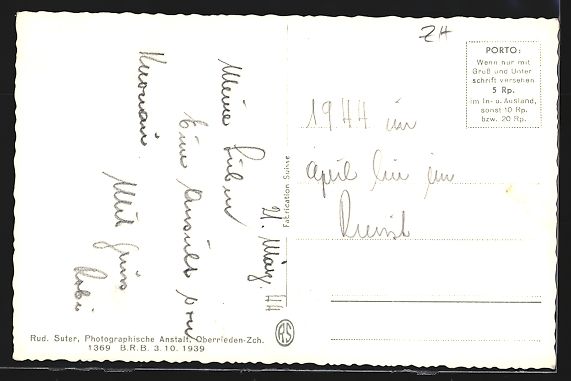 ZH
PORTO:
Wenn nur mit
Gruß und Unter
schrift versehen
5 Rp.
im In- u. Ausland,
sonst 10 Rp.
bzw. 20 Rp.
21. März 44
Meine Lieben
Eine Ansicht von
Mit Gruss
1944 im
april bin im
Dienst
Fabrication Suisse
RS
Rud. Suter, Photographische Anstalt, Oberrieden-Zch.
1369 B.R.B. 3.10.1939